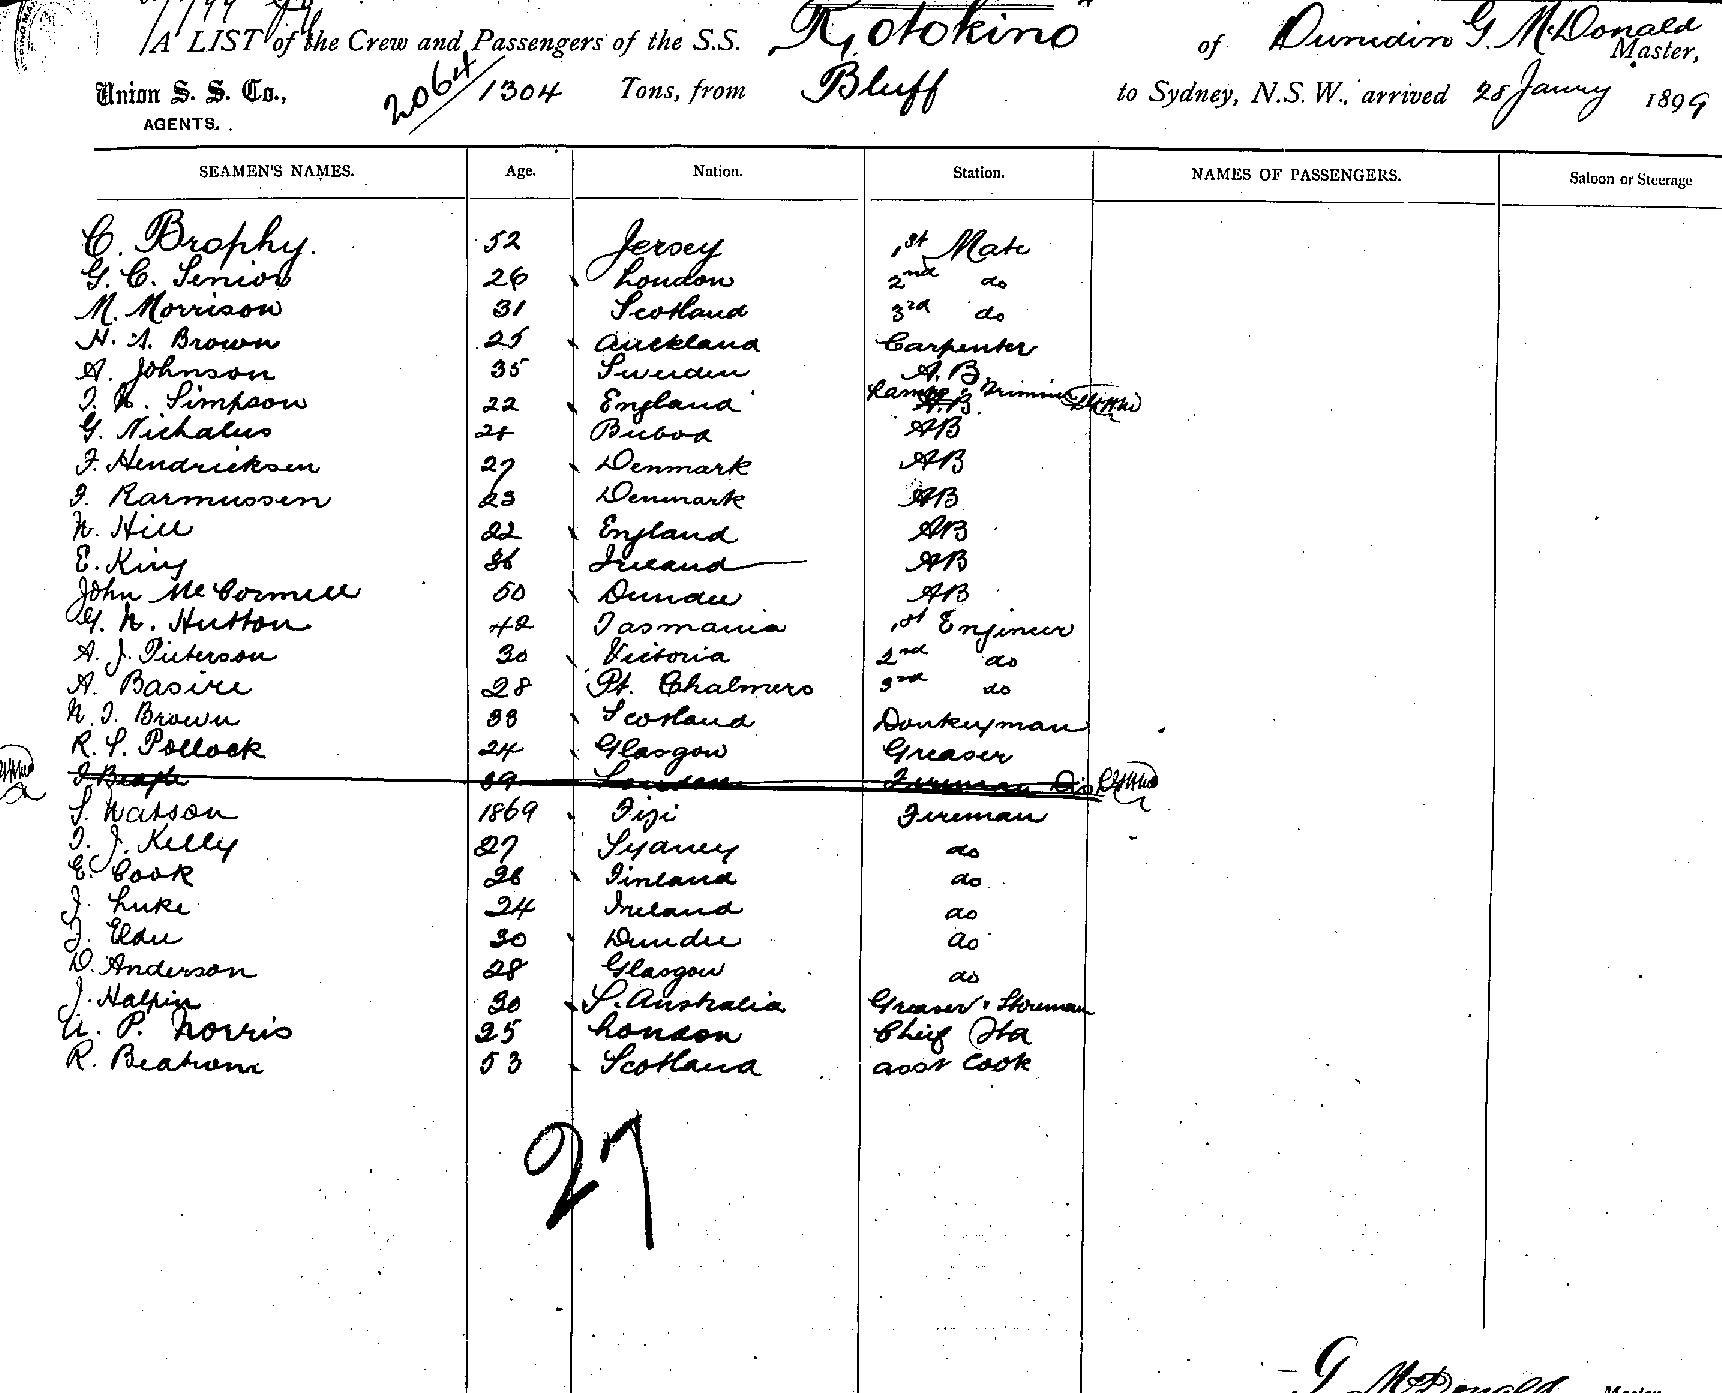 A LIST of the Crew and Passengers of the S.S. "Rotokino" of Dunedin G. McDonald Master,
Union S. S. Co., AGENTS. 2064/1304 Tons, from Bluff to Sydney, N.S.W., arrived 28 Janry 1899
SEAMEN'S NAMES. Age. Nation. Station. NAMES OF PASSENGERS. Saloon or Steerage
C. Brophy. 52 Jersey 1st Mate
G. C. Senior 26 London 2nd do
M. Morrison 31 Scotland 3rd do
H. A. Brown 25 Auckland Carpenter
A. Johnson 35 Sweden A.B
Simpson 22 England Lamps & Trimmer
G. Nicholus AB
F. Hendricksen 27 Denmark AB
F. Rasmussen 23 Denmark AB
W. Hill 22 England AB
E. King 36 Ireland AB
John McCormell 50 Dundee AB
G. W. Hutton 42 Tasmania 1st Engineer
A. J. Pieterson 30 Victoria 2nd do
A. Basire 28 Pt. Chalmers 3rd do
W. T. Brown 33 Scotland Donkeyman
R. S. Pollock 24 Glasgow Greaser
39 London Fireman
S. Watson 1869 Fiji Fireman
T. J. Kelly 27 Sydney do
E. Cook 26 Finland do
J. Luke 24 Ireland do
J. Elder 30 Dundee do
D. Anderson 28 Glasgow do
J. Halpin 30 S. Australia Greaser & Storeman
A. P. Norris 25 London Chief Std
R. Beatson 53 Scotland asst Cook
27
G McDonald Master